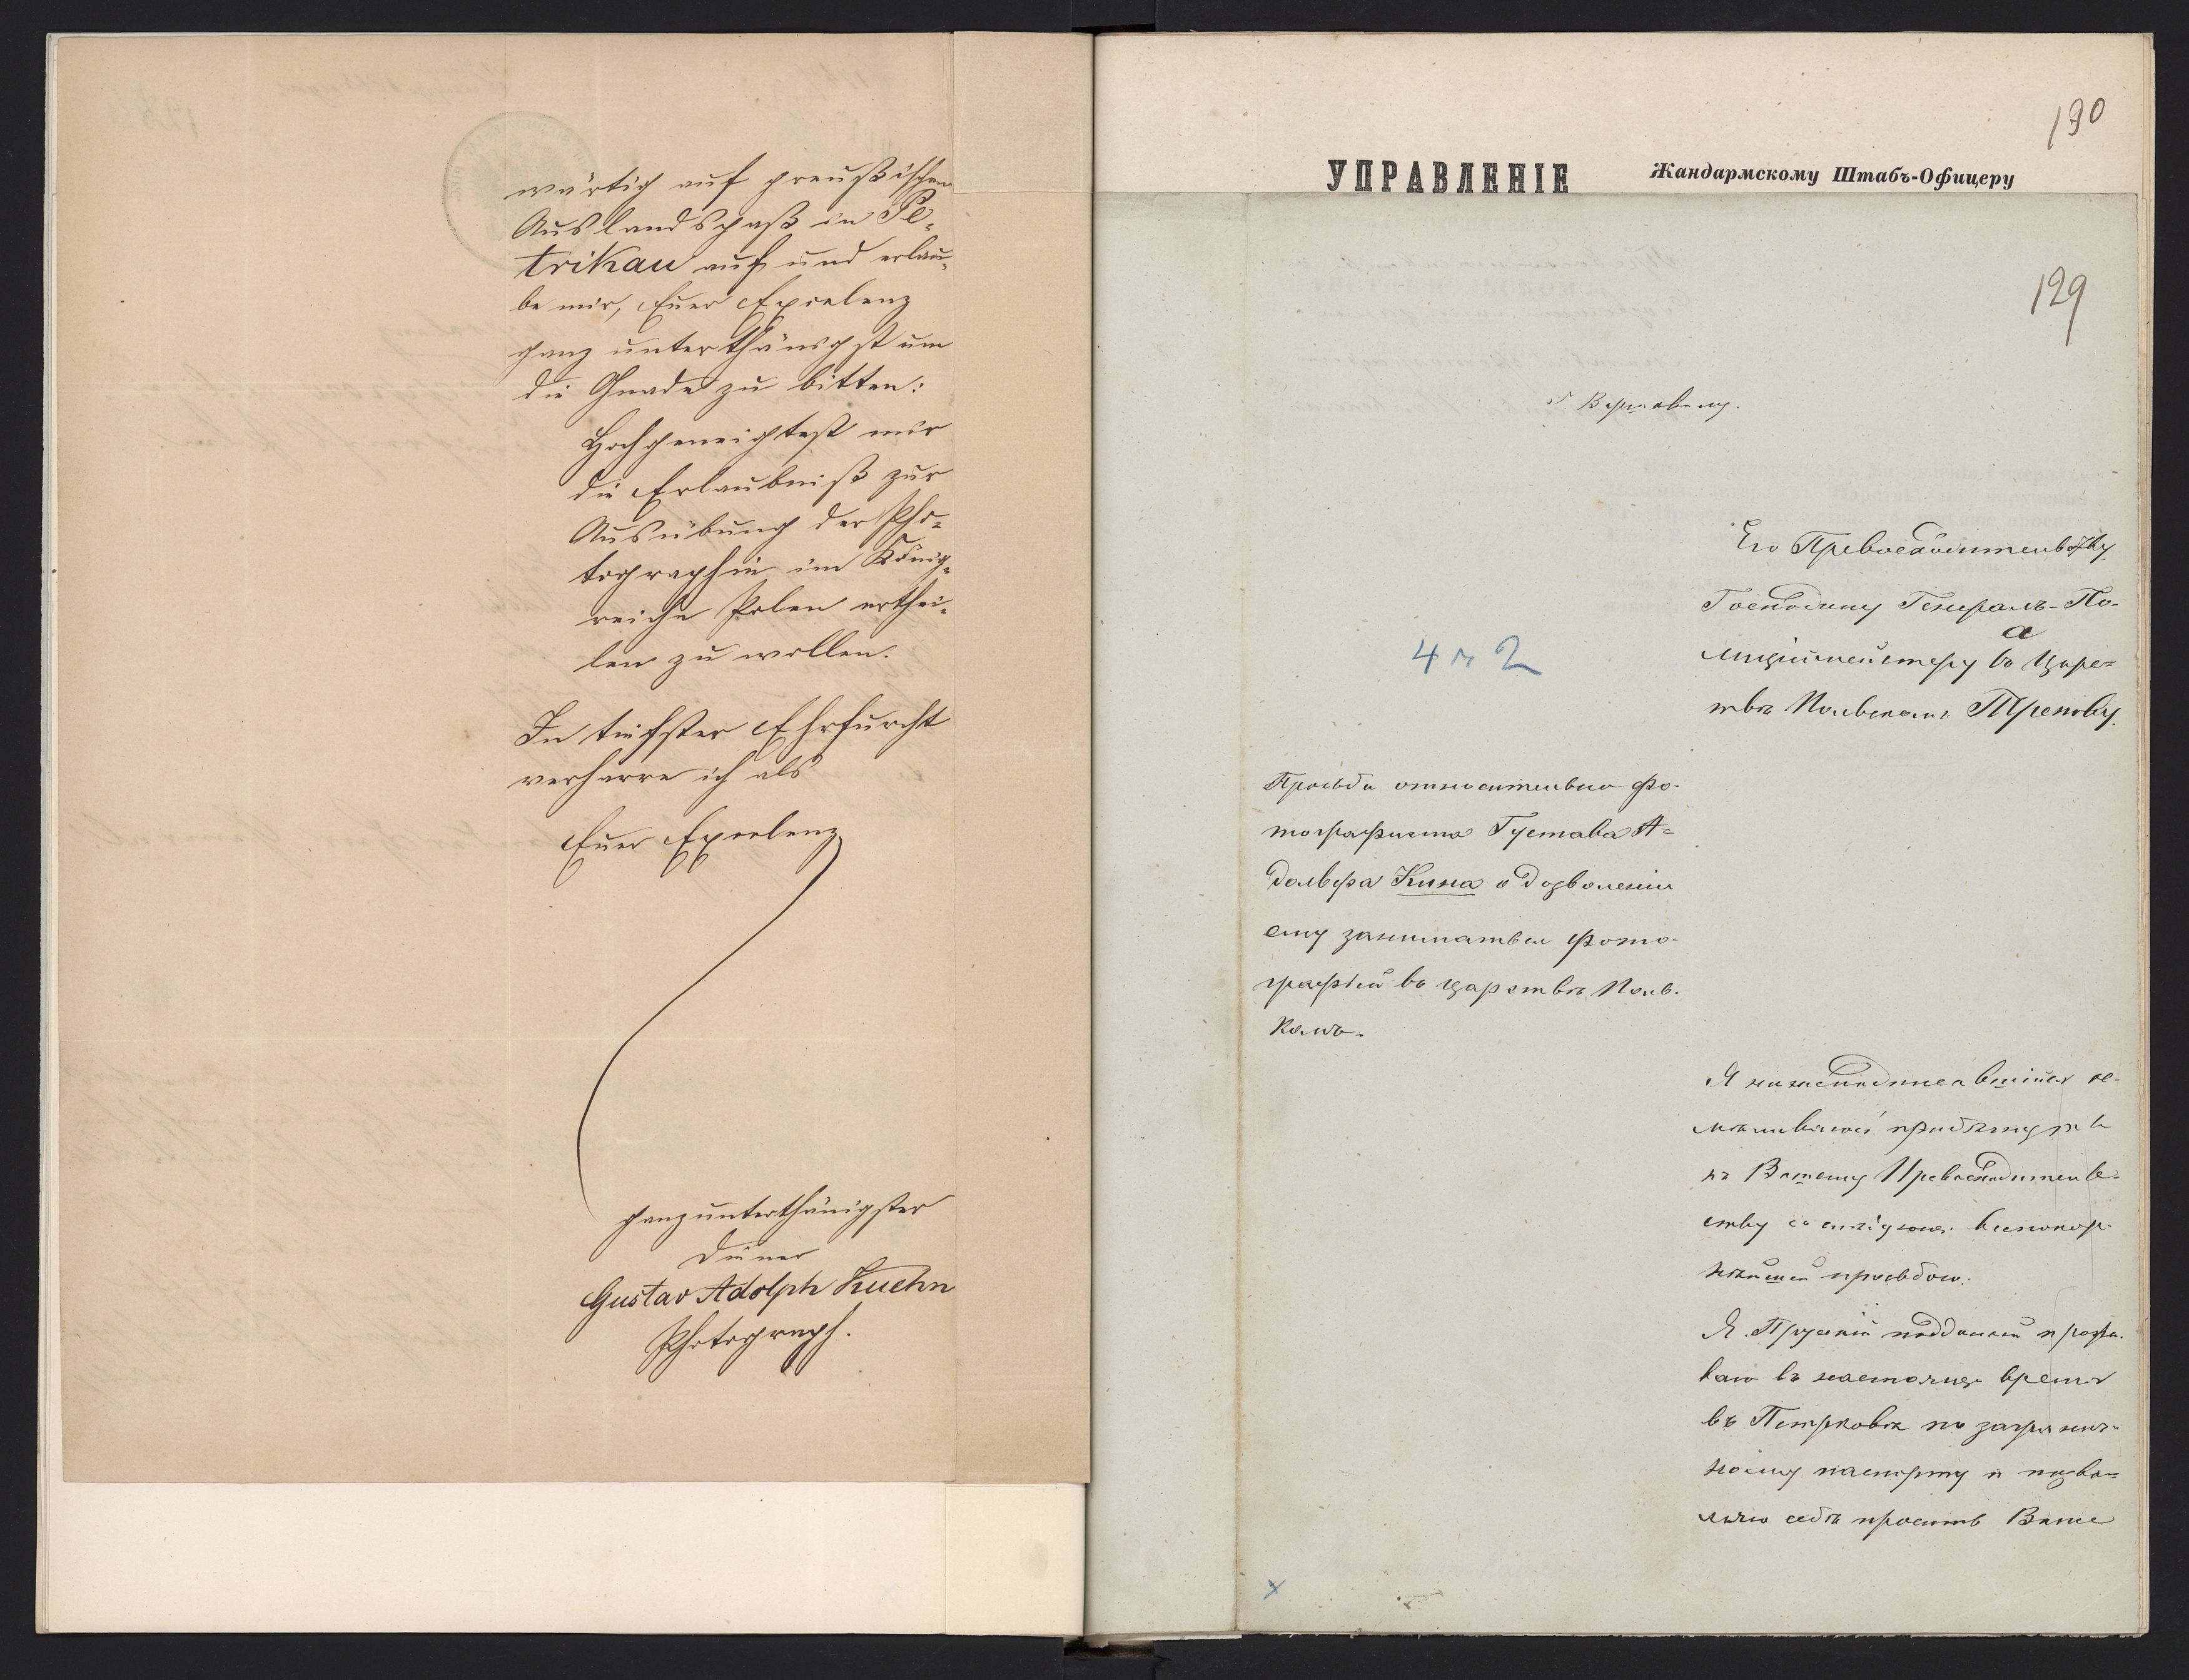 wärtig auf preußischen
Auslandspaß in Pe-
trikau auf und erlau-
be mir, Euer Excelenz
ganz unterthänigst um
die Gnade zu bitten:
Hochgeneigtest mir
die Erlaubniß zur
Ausübung der Pho-
tographie im König-
reiche Polen erthei-
len zu wollen.
In tiefster Ehrfurcht
verharre ich als
Euer Excelenz
ganz unterthänigster
Diener
Gustav Adolph Kuehn
Photograph.
130
УПРАВЛЕНІЕ
Жандармскому Штабъ-Офицеру
129
г. Варшавому.
Его Превосходительству
Господину Генералъ-По-
лиціймейстеру въ Царс-
твѣ Польскомъ Трепову.
Просьба относительно фо-
тографиста Густава А-
дольфа Кина о дозволеніи
ему заниматься фото-
графіей въ царствѣ Поль-
комъ.
Я нижеподписавшійся се-
къ Вашему Превосходитель-
ству со слѣдующ. всепокор-
нѣйшей просьбою:
Я Прускій подданный прожи-
ваю въ настоящее время
въ Петрковѣ по заграни-
ному паспорту и позво-
ляю себѣ просить Ваше